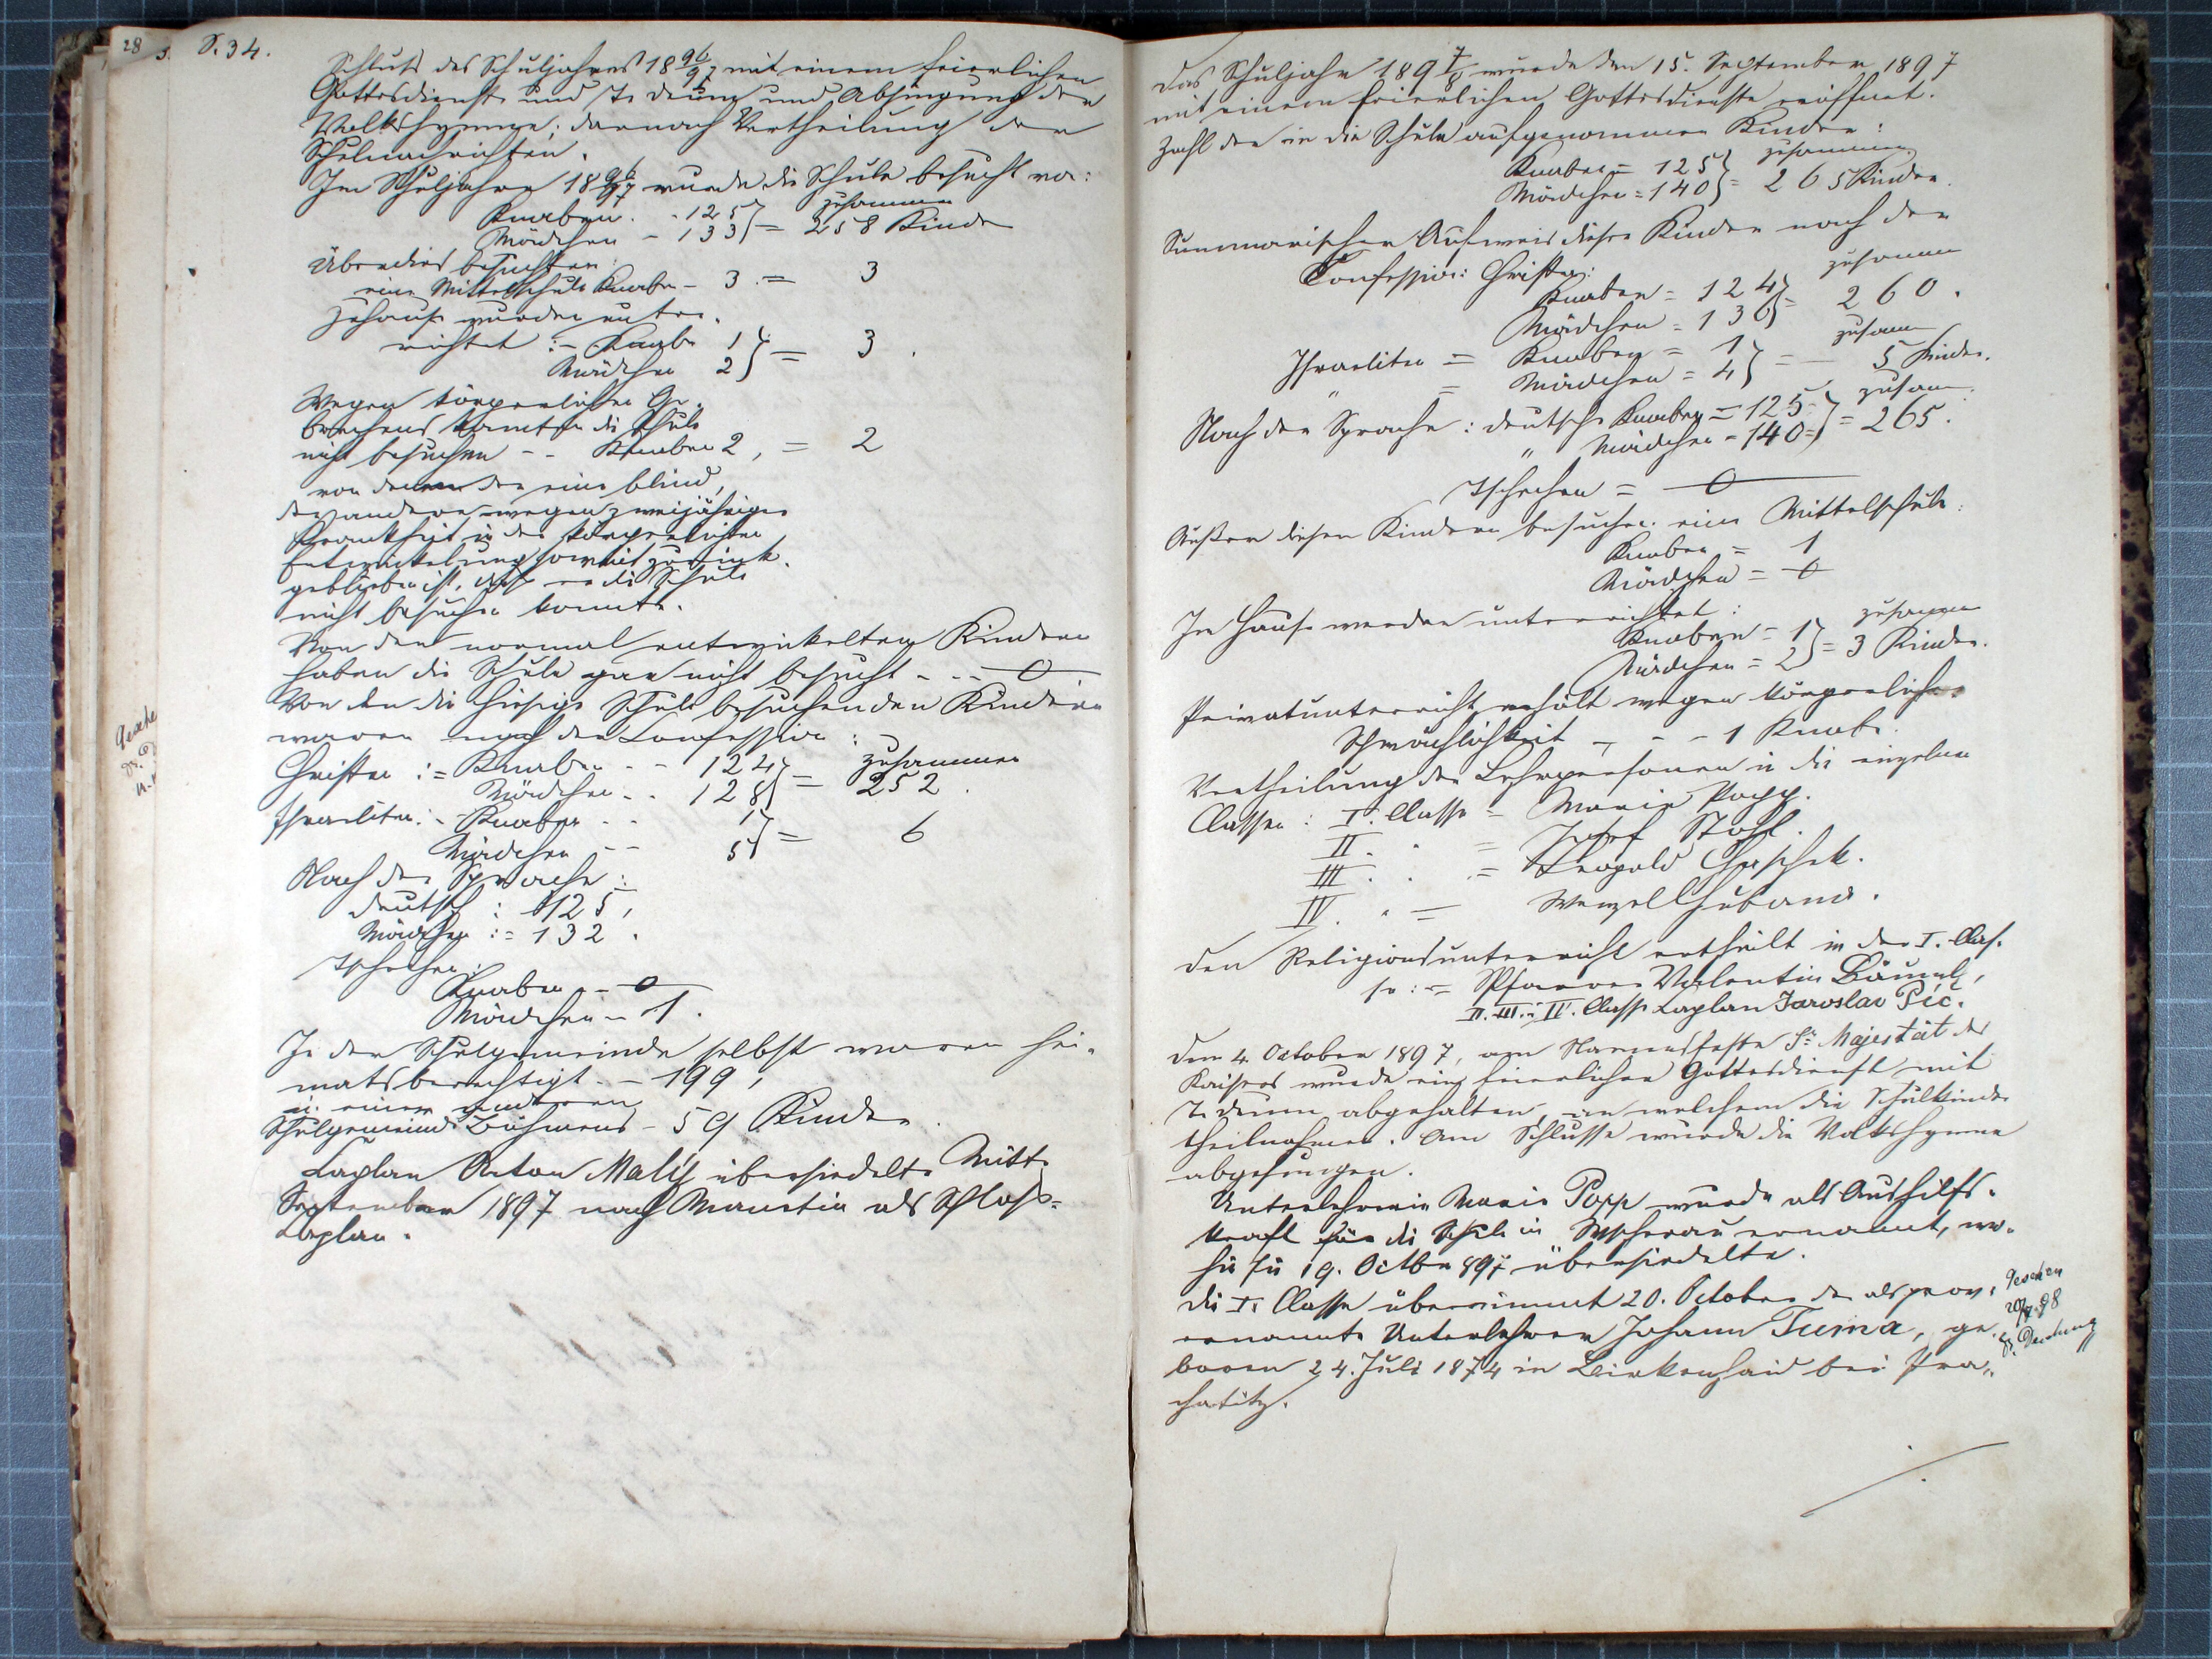 28
S. 34.
Schluß des Schuljahres 18 96/97 mit einem feierlichen
Gottesdienste und Te deum und Absingung der
Volkshymne; darnach Vertheilung der
Schulnachrichten.
Im Schuljahre 18 96/97 wurde die Schule besucht von:
Knaben - 125 } zusammen
Mädchen - 133 } = 258 Kinder
Überdies besuchten:
eine Mittelschule Knaben - 3 = 3
Zuhause wurden unter-
richtet :- Knabe 1 } = 3.
Mädchen 2
Wegen körperlicher Ge-
brechens konnten die Schule
nicht besuchen -- Knaben 2, = 2
von denen der eine blind,
der andere wegen zweijähriger
Krankheit in der körperlichen
Entwickelung soweit zurück-
geblieben ist, daß er die Schule
nicht besuchen konnte.
Von den normal entwickelten Kindern
haben die Schule gar nicht besucht - - - 0
Von den die hiesige Schule besuchenden Kindern
waren nach der Confession:
Christen := Knaben - - 124 } zusammen
Mädchen - - 128 } = 252.
Israeliten:- Knaben - - 1 } = 6
Mädchen - - 5
Nach der Sprache:
deutsch : 125,
Mädchen := 132.
Tschechen:
Knaben - - 0
Mädchen - 1.
In der Schulgemeinde selbst waren hei-
matsberechtigt - - 199,
in einer anderen
Schulgemeinde Böhmens - 59 Kinder.
Caplan Anton Malý übersiedelte Mitte
September 1897 nach Manetin als Schloß-
Caplan.
Das Schuljahr 1897/8 wurde den 15. September 1897
mit einem feierlichen Gottesdienste eröffnet.
Zahl der in die Schule aufgenommen Kinder:
Knaben = 125 } zusammen
Mädchen = 140 } = 265 Kinder.
Summarischer Ausweis dieser Kinder nach der
Confession: Christen: zusammen
Knaben = 124 } = 260.
Mädchen = 136
Israeliten = Knaben = 1 } zusamm
" = Mädchen = 4 } = - 5 Kinder.
Nach der Sprache : deutsche Knaben = 125 } zusam.
" Mädchen = 140 } = 265.
Tschechen = 0
Außer diesen Kindern besuchen eine Mittelschule:
Knaben = 1
Mädchen = 0
Im Hause werden unterrichtet: zusammen
Knaben = 1 } = 3 Kinder.
Mädchen = 2
Privatunterricht erhält wegen körperlicher
Schwächlichkeit - - - 1 Knabe.
Vertheilung der Lehrpersonen in die einzelnen
Classen : I. Classe = Marie Popp.
II. " = Josef Stahl.
III. " = Leopold Chaschek.
IV. " = Wenzel Hubana.
Den Religionsunterricht ertheilt in der I. Clas-
se := Pfarrer Valentin Bäuml,
II. III. u. IV. Classe Caplan Jaroslav Pič.
Den 4. October 1897, am Namensfeste Sr. Majestät des
Kaisers wurde ein feierlicher Gottesdienst mit
Te deum abgehalten, an welchem die Schulkinder
theilnahmen. Am Schlusse wurde die Volkshymne
abgesungen.
Unterlehrerin Marie Popp wurde als Aushilfs-
kraft für die Schule in Wscherau ernannt, wo-
hin sie 19. Octber 897 übersiedelte.
Die I. Classe übernimmt 20. October der als prov.
ernannte Unterlehrer Johann Tuma, ge-
boren 24. Juli 1874 in Birkenhaid bei Pra-
chatitz.
Gesehen